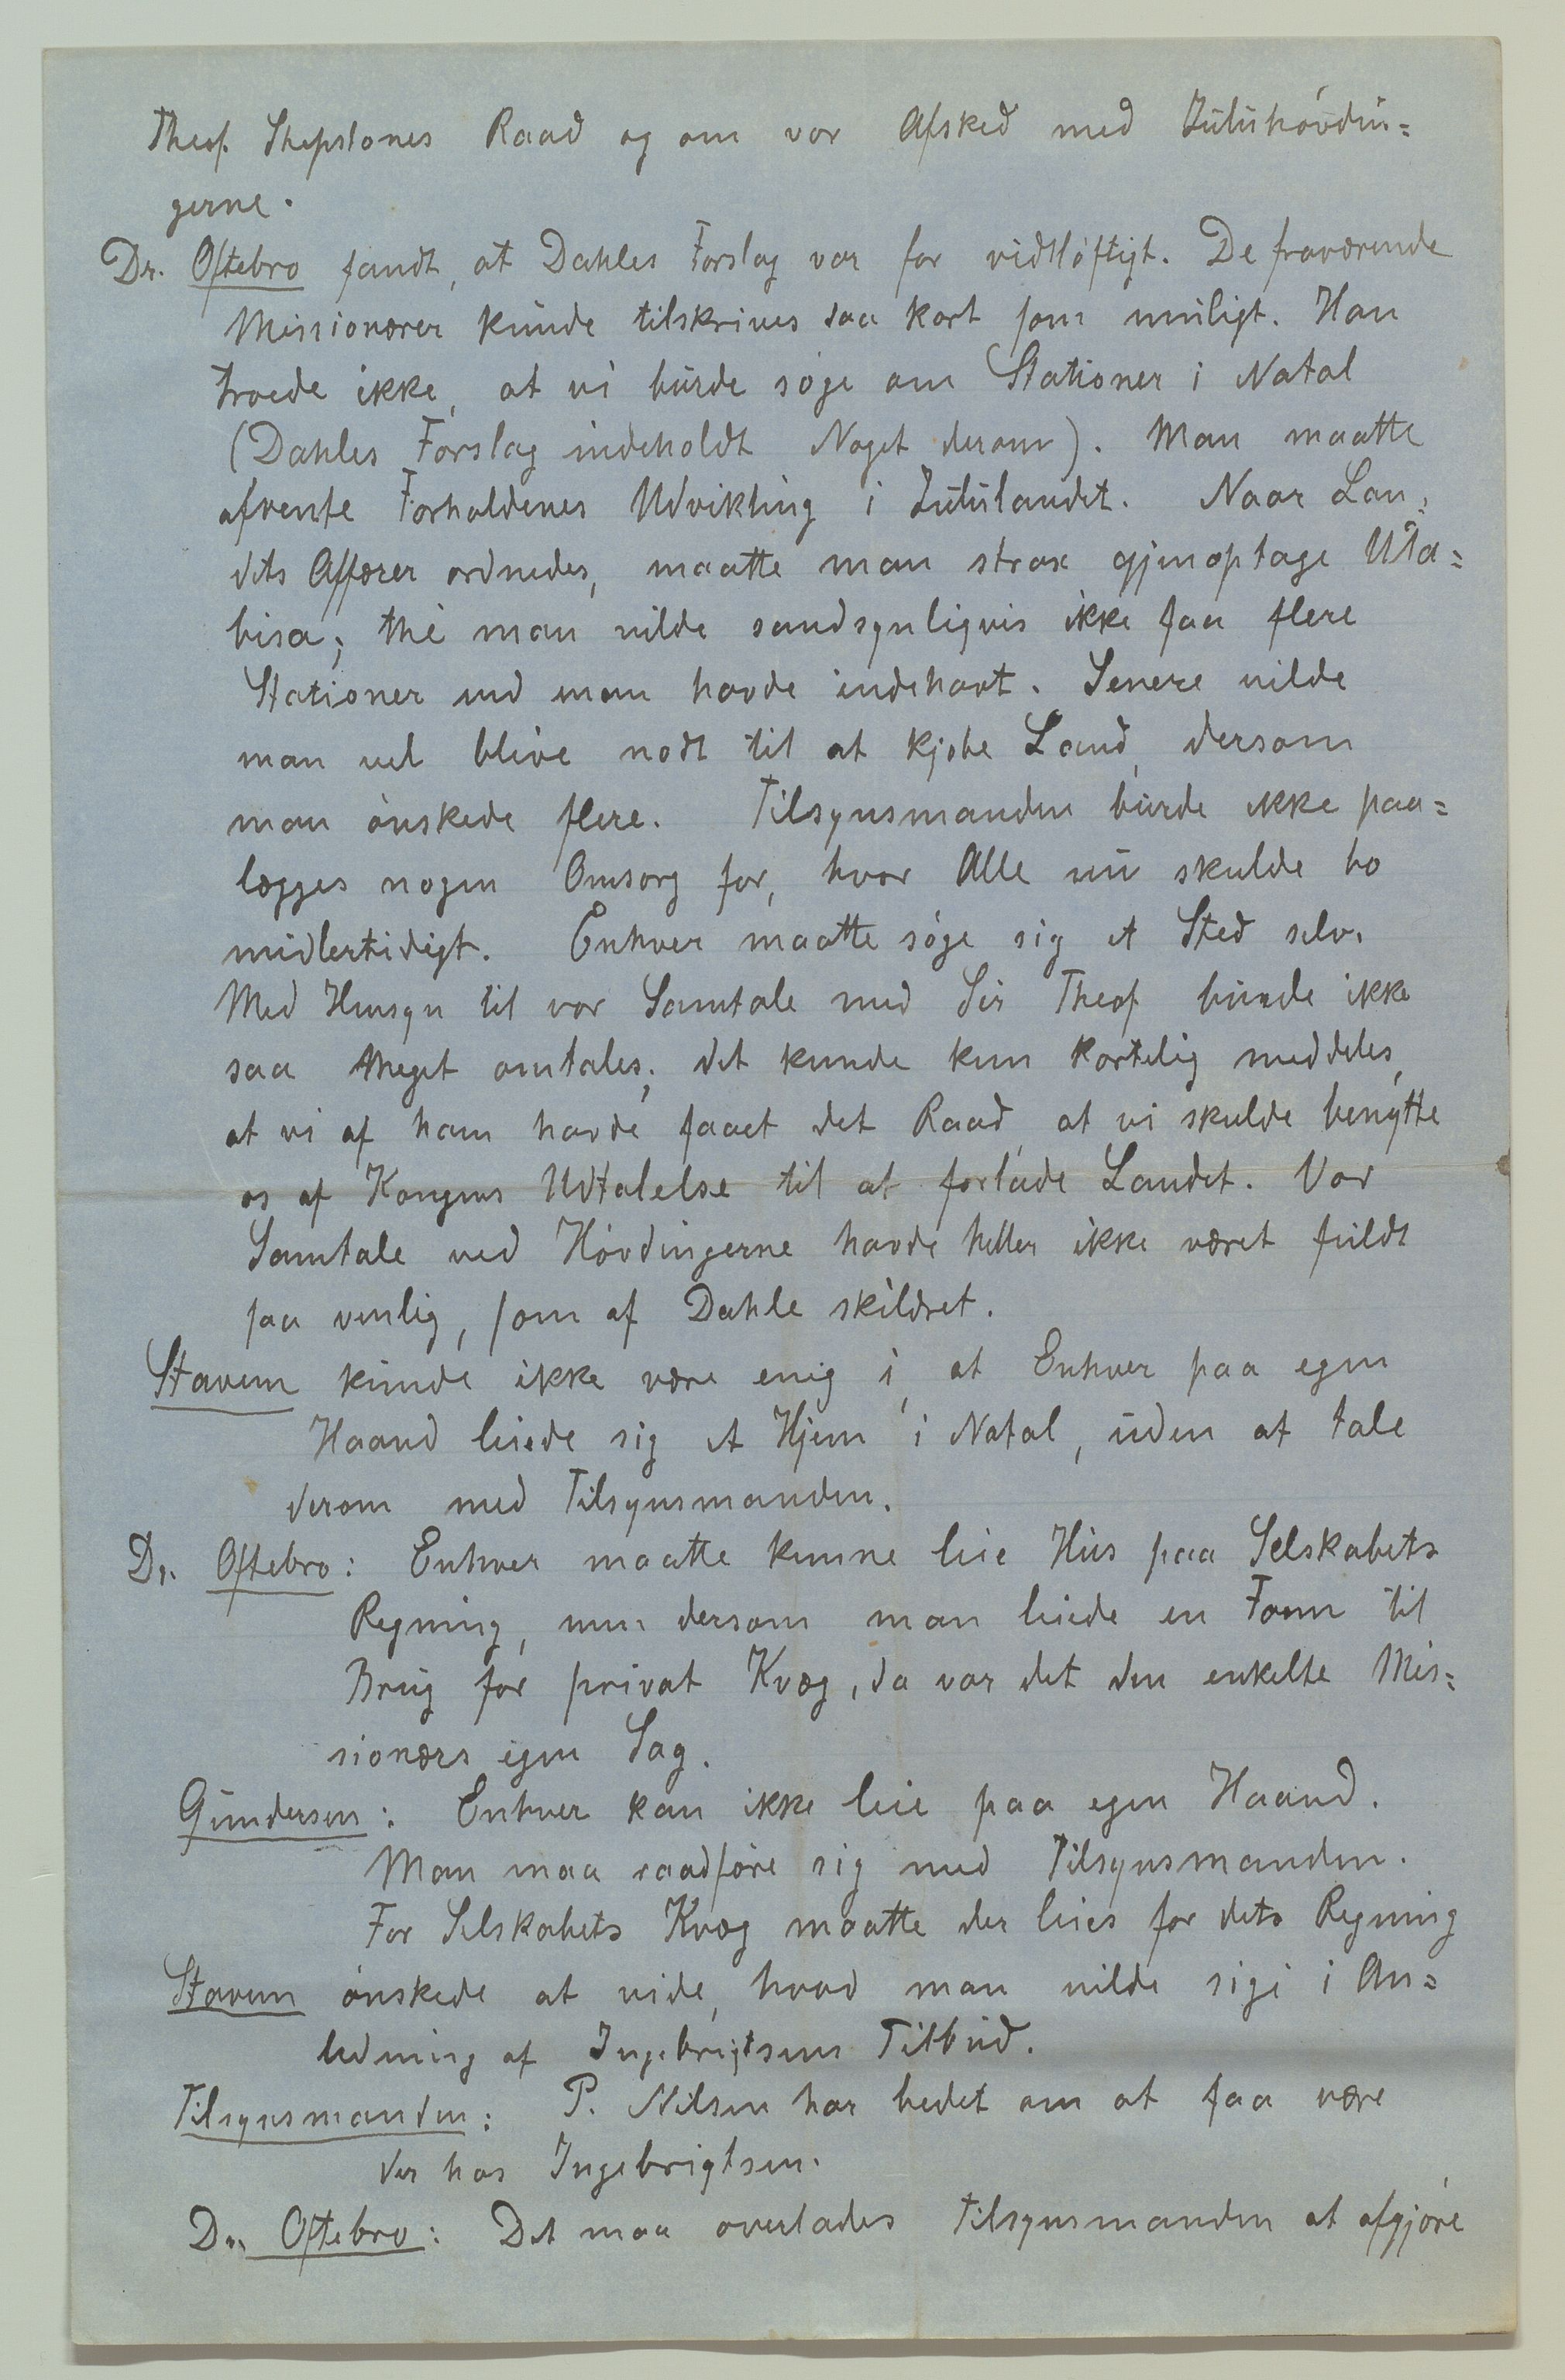 Theof. Shepstones Raad og om vor Afsked med Zuluhøvdin=
gerne.
Dr. Oftebro fandt, at Dahles Forslag var for vidtløftigt. De fraværende
Missionærer kunde tilskrives saa kort som muligt. Han
troede ikke, at vi burde søge om Stationer i Natal
(Dahles Forslag indeholdt Noget derom). Man maatte
afvente Forholdenes Udvikling i Zululandet. Naar Lan=
dets Affærer ordnedes, maatte man strax gjenoptage Um=
bisa; thi man vilde sandsynligvis ikke faa flere
Stationer end man havde indehavt. Senere vilde
man vel blive nødt til at kjøbe Land, dersom
man ønskede flere. Tilsynsmanden burde ikke paa=
lægges nogen Omsorg for, hvor Alle nu skulde bo
midlertidigt. Enhver maatte søge sig et Sted selv.
Med Hensyn til vor Samtale med Sir Theof burde ikke
saa Meget omtales; det kunde kun kortelig meddeles,
at vi af ham havde faaet det Raad, at vi skulde benytte
os af Kongens Udtalelse til at forlade Landet. Vor
Samtale ved Høvdingerne havde heller ikke været fuldt
saa venlig, som af Dahle skildret.
Stavem kunde ikke være enig i, at Enhver paa egen
Haand leiede sig et Hjem i Natal, uden at tale
derom med Tilsynsmanden.
Dr. Oftebro: Enhver maatte kunne leie Hus paa Selskabets
Regning, men dersom man leiede en Farm til
Brug for privat Kvæg, da var det den enkelte Mis=
sionærs egen Sag.
Gundersen: Enhver kan ikke leie paa egen Haand.
Man maa raadføre sig med Tilsynsmanden.
For Selskabets Kvæg maatte der leies for dets Regning
Stavem ønskede at vide, hvad man vilde sige i An=
ledning af Ingebrigtsens Tilbud.
Tilsynsmanden: P. Nilsen har bedet om at faa være
der hos Ingebrigtsen.
Dr. Oftebro: Det maa overlades Tilsynsmanden at afgjøre